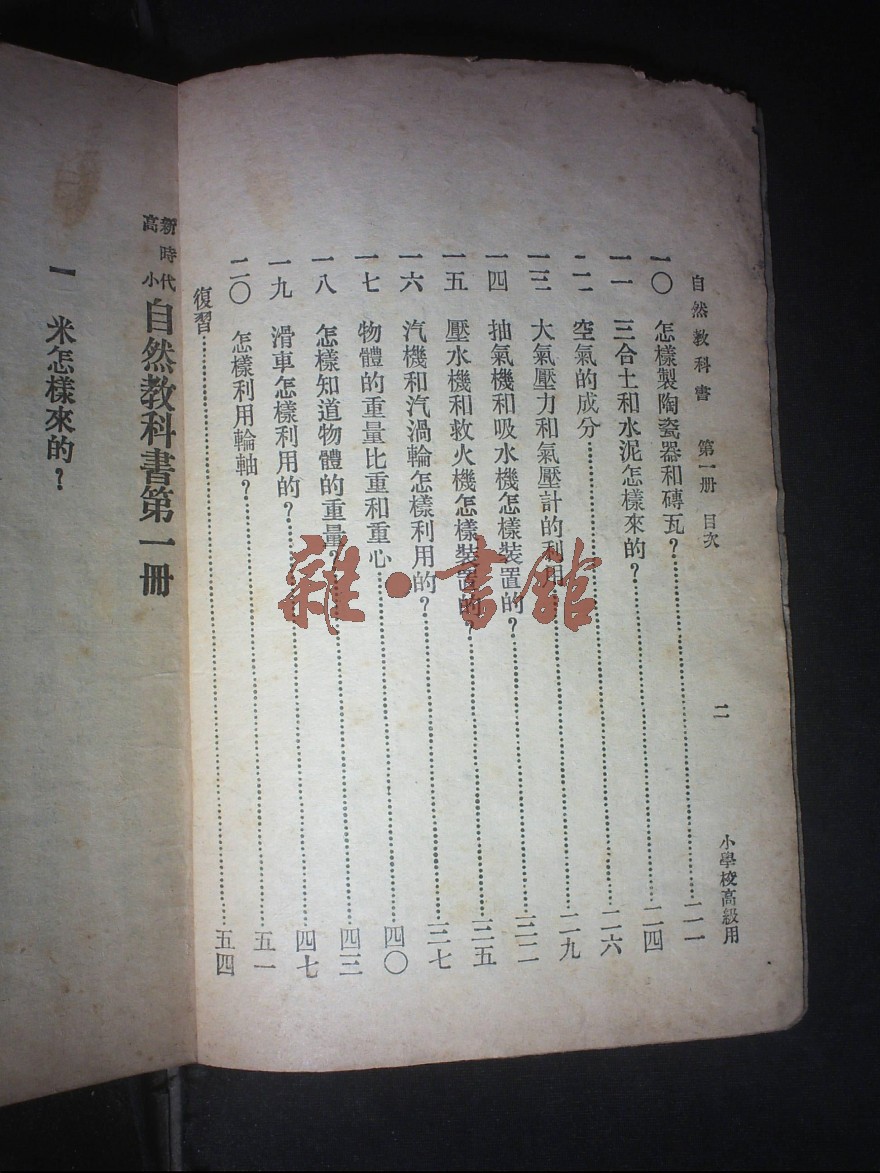 自然教科書 第一册 目次 二 小學校高級用
一〇 怎樣製陶瓷器和磚瓦？ 二一
一一 三合土和水泥怎樣來的？ 二四
一二 空氣的成分 二六
一三 大氣壓力和氣壓計的利用 二九
一四 抽氣機和吸水機怎樣裝置的？ 三二
一五 壓水機和救火機怎樣裝置的？ 三五
一六 汽機和汽渦輪怎樣利用的？ 三七
一七 物體的重量比重和重心 四〇
一八 怎樣知道物體的重量？ 四三
一九 滑車怎樣利用的？ 四七
二〇 怎樣利用輪軸？ 五一
復習 五四
新時代高小自然教科書第一冊
一 米怎樣來的？
雜·書館